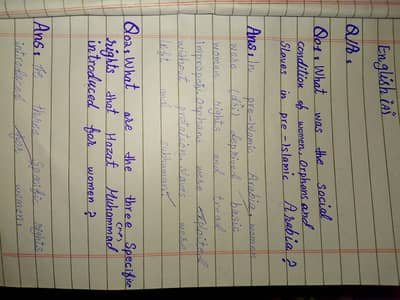 English (A)
Q1A.
Q01. What was the social
condition of women, Orphens and
Slaves in pre-Islamic Arabia?
Ans: In pre-Islamic Arabia, women
were deprived basic
women rights and
Orphans were exploited
without slaves were
and
Q02. What are the three Specific
rights that Hazat Muhammad
introduced for women?
Ans: three Specific rights
introduced for women.